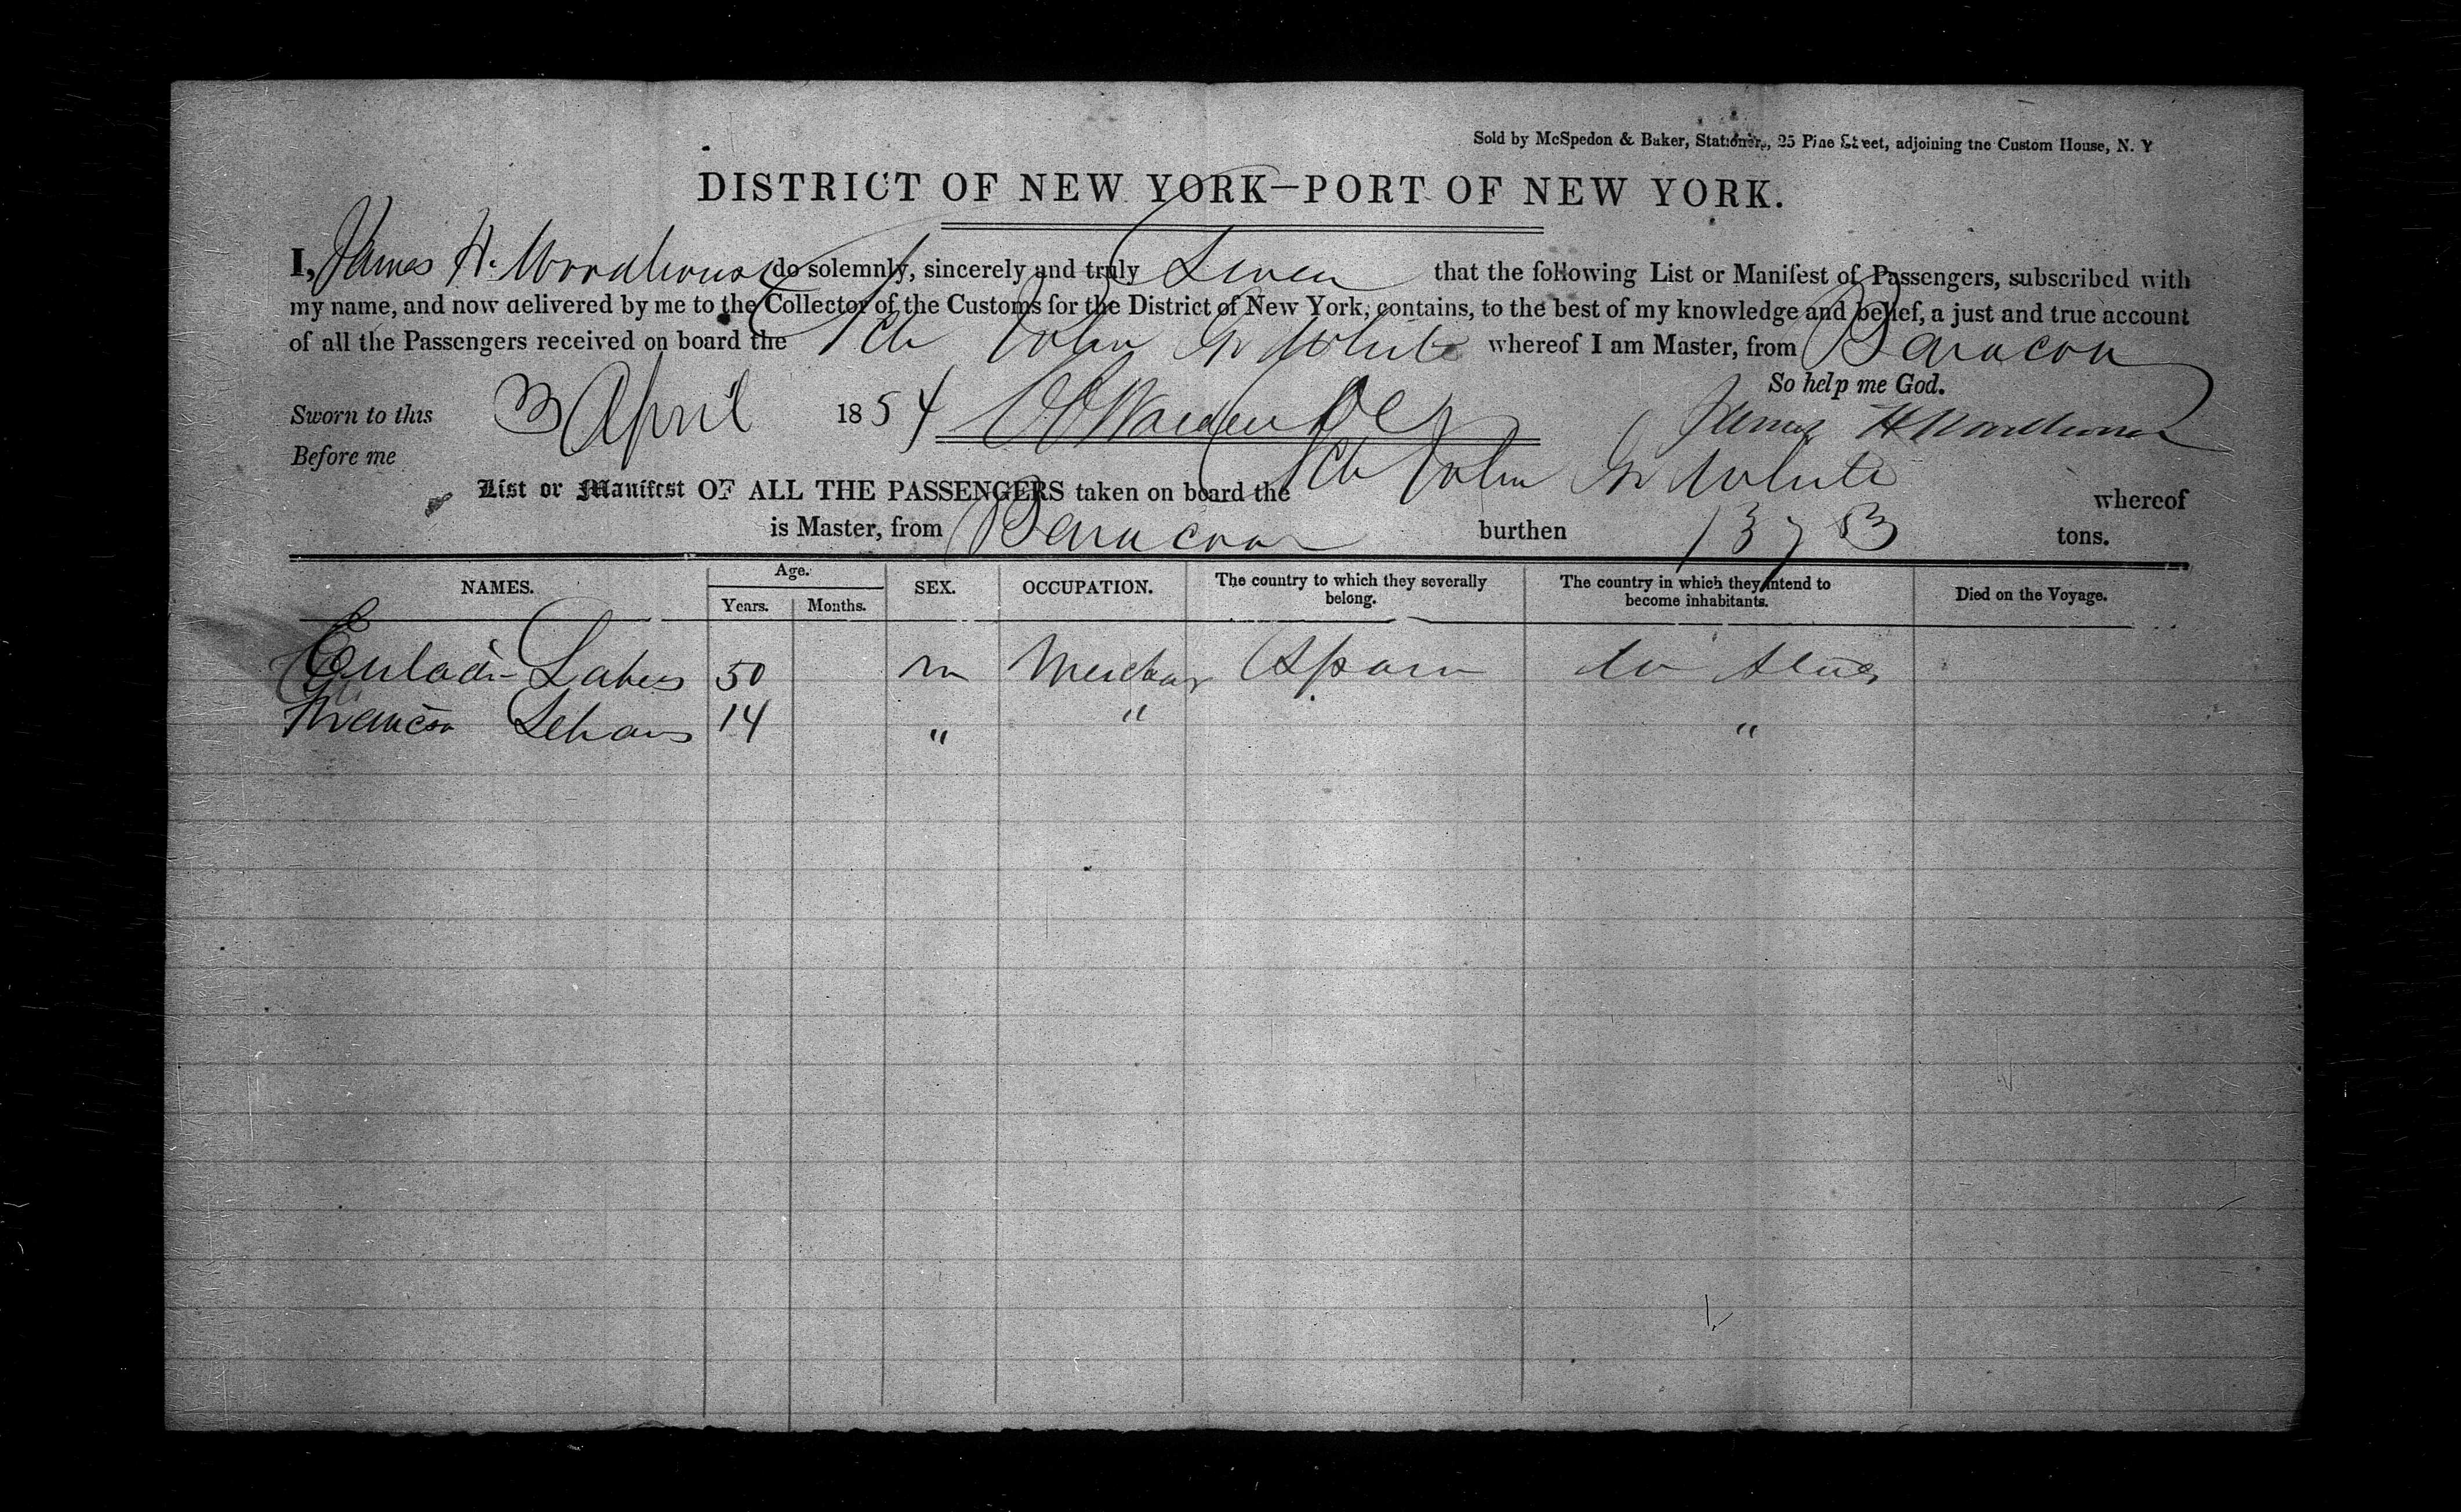 Sold by McSpedon & Baker, Stationers, 25 Pine Street, adjoining the Custom House, N. Y
DISTRICT OF NEW YORK—PORT OF NEW YORK.
I, James H. Woodhouse do solemnly, sincerely and truly Swear that the following List or Manifest of Passengers, subscribed with
my name, and now delivered by me to the Collector of the Customs for the District of New York, contains, to the best of my knowledge and belief, a just and true account
of all the Passengers received on board the Sch John W White whereof I am Master, from Baracoa
So help me God.
Sworn to this 3 April 1854 James H Woodhouse
Before me
List or Manifest OF ALL THE PASSENGERS taken on board the Sch John W White whereof
is Master, from Baracoa burthen 137 tons.
NAMES. Age. Years. Months. SEX. OCCUPATION. The country to which they severally belong. The country in which they intend to become inhabitants. Died on the Voyage.
50 m Merchant Spain
14 " " "